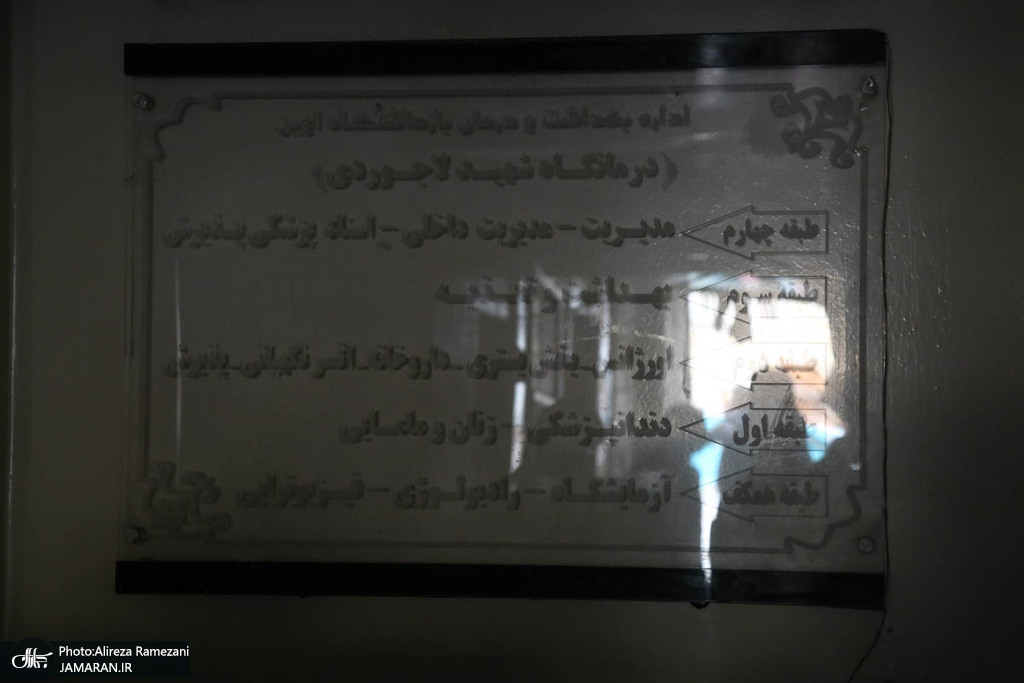 اداره بهداشت و درمان بازداشتگاه اوین
(درمانگاه شهید لاجوردی)
طبقه چهارم مدیریت - مدیریت داخلی - اسناد پزشکی پذیرش
طبقه سوم بهداشت و تغذیه
طبقه دوم اورژانس - بخش بستری - داروخانه - افسر نگهبانی - پذیرش
طبقه اول دندانپزشکی - زنان و مامایی
طبقه همکف آزمایشگاه - رادیولوژی - فیزیوتراپی
جماران Photo:Alireza Ramezani
JAMARAN.IR